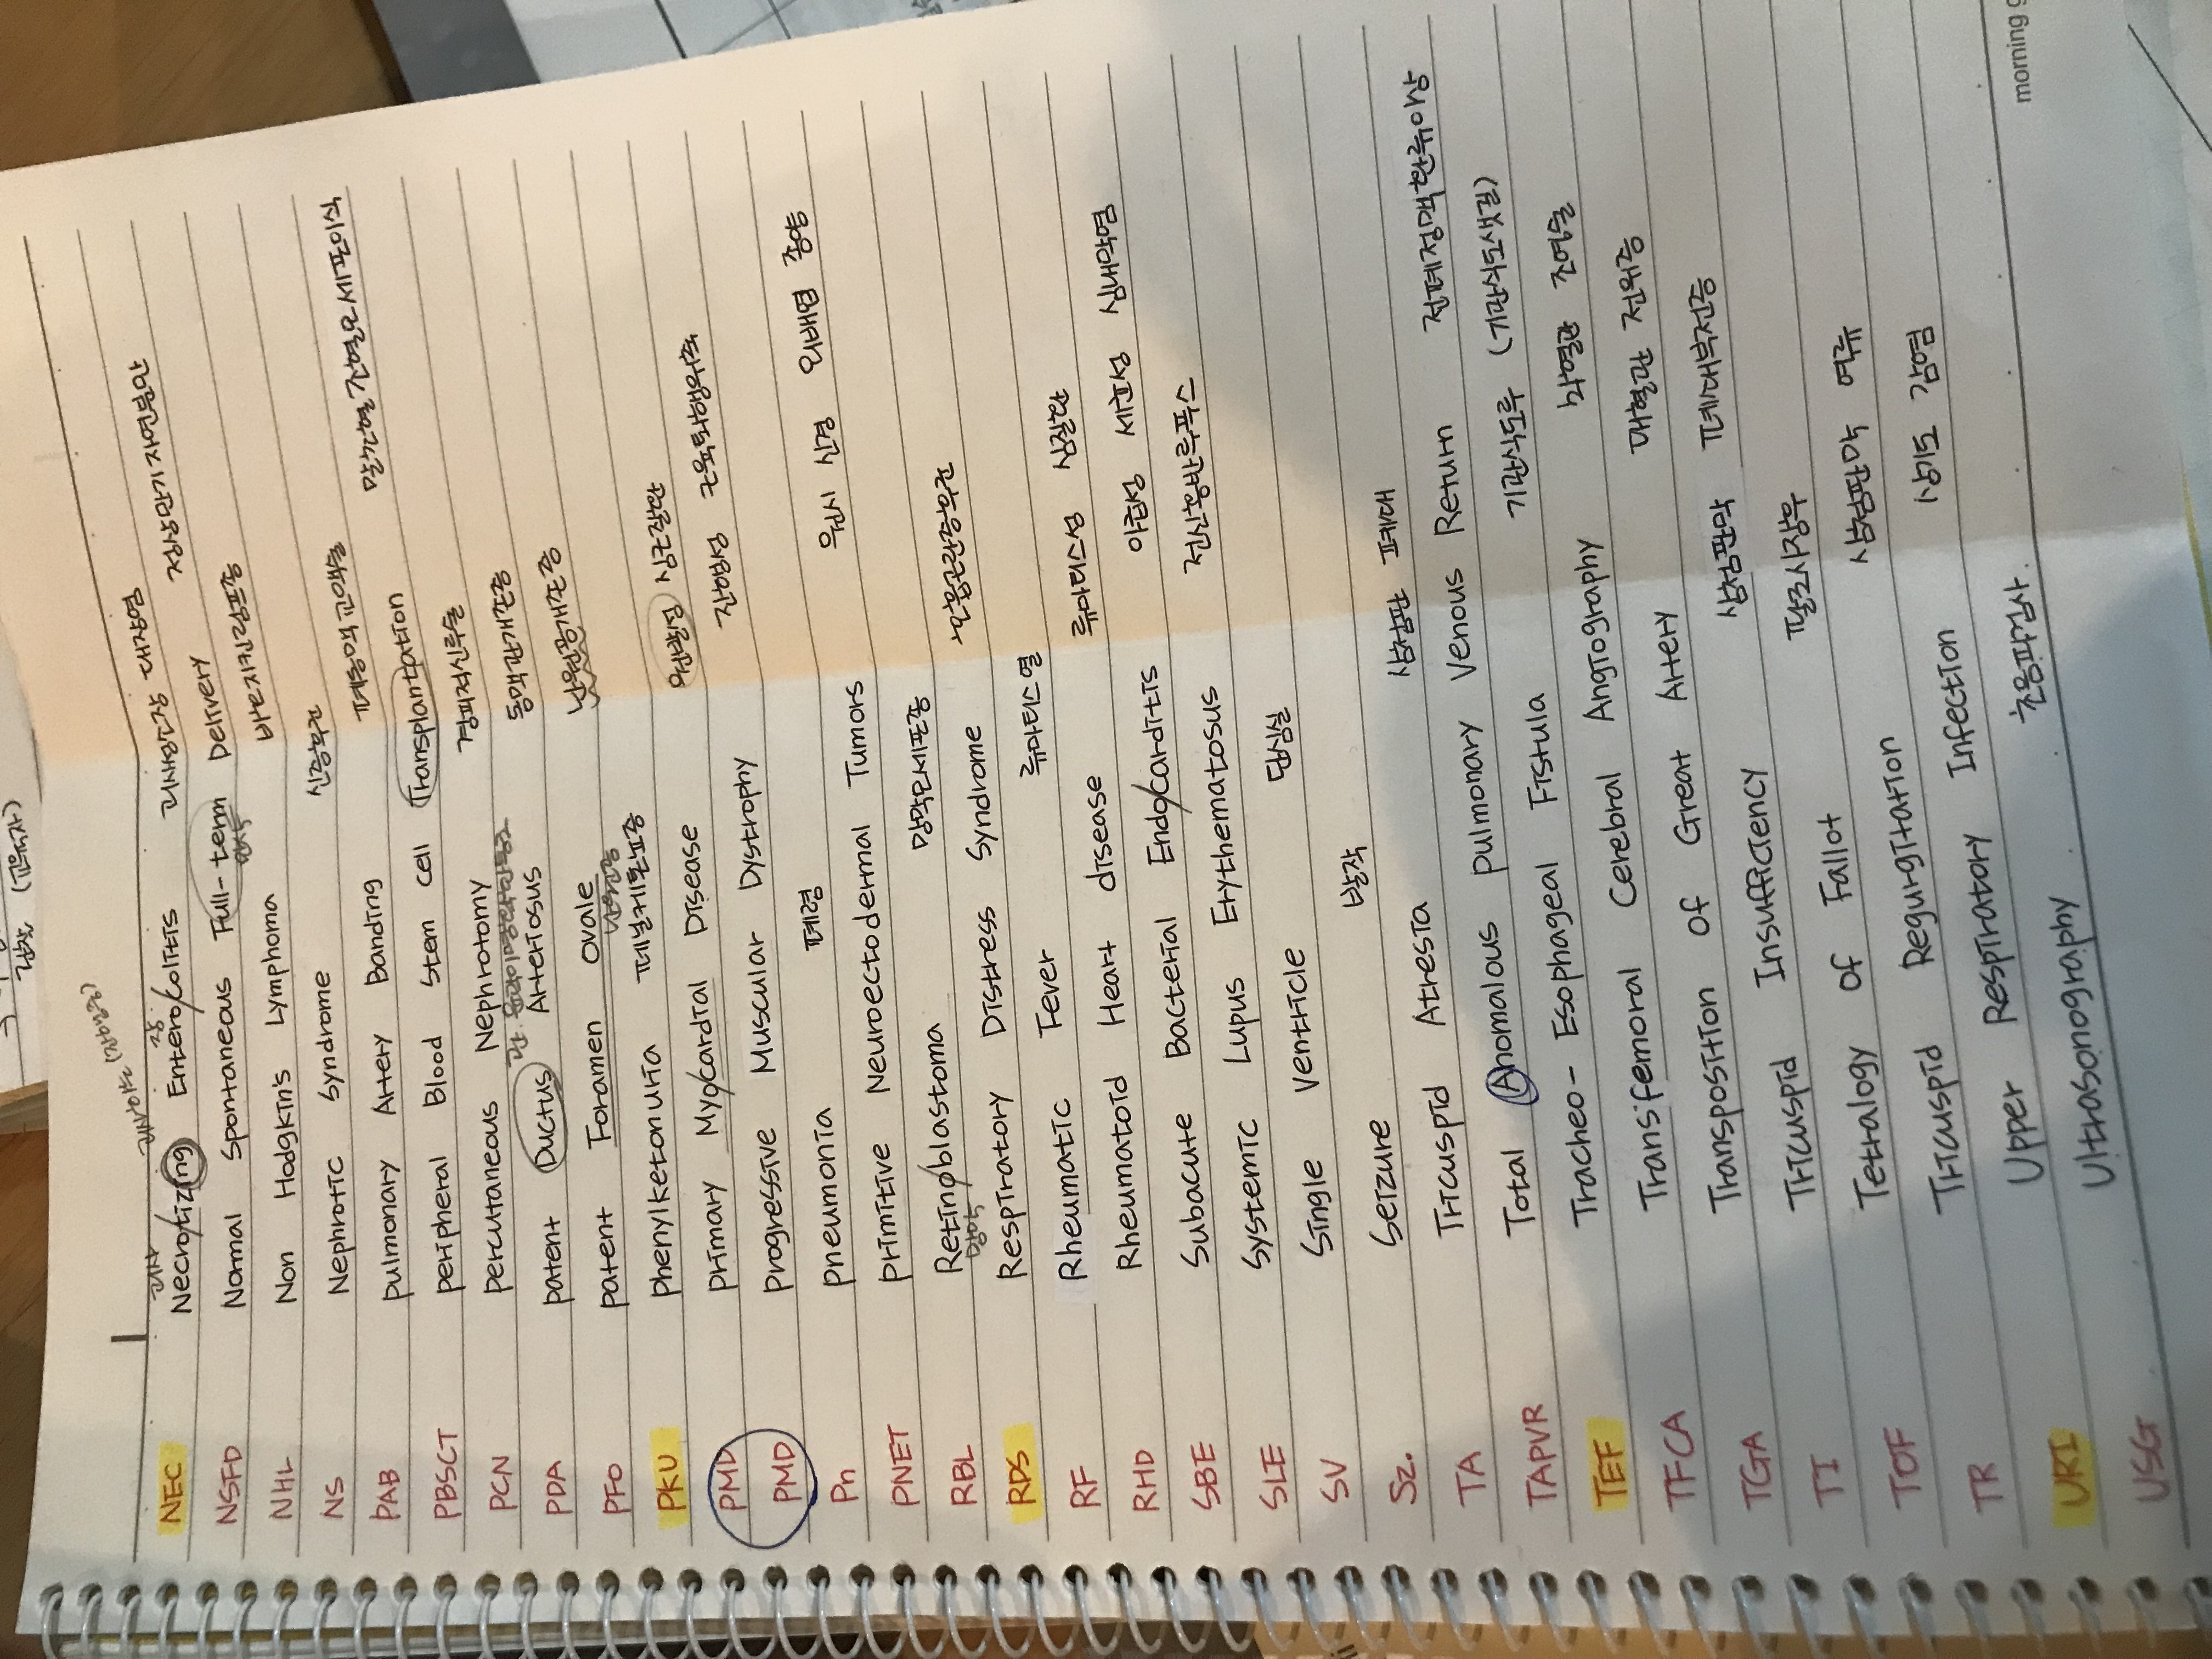 괴사하는 (과정중)
괴사 장
NEC Necrotizing Enterocolitis 괴사성소장 대장염
NSFD Normal Spontaneous Full-term Delivery 정상만기자연분만
만삭
NHL Non Hodgkin's Lymphoma 비호지킨림프종
NS Nephrotic Syndrome 신증후군
PAB pulmonary Artery Banding 폐동맥교약술
PBSCT peripheral Blood Stem cell Transplantation 말초혈조혈모세포이식
PCN percutaneous Nephrotomy 경피적신루술
PDA patent Ductus Arteriosus 동맥관개존증
PFO patent Foramen ovale 난원공개존증
난원공
PKU phenylketonuria 페닐케톤뇨증
PMD primary Myocardial Disease 원발성 심근질환
PMD progressive Muscular Dystrophy 진행성 근육퇴행위축
Pn pneumonia 폐렴
PNET primitive Neuroectodermal Tumors 원시 신경 외배엽 종양
RBL Retinoblastoma 망막모세포종
망막
RDS Respiratory Distress Syndrome 호흡곤란증후군
RF Rheumatic Fever 류마티스열
RHD Rheumatoid Heart disease 류마티스성 심질환
SBE Subacute Bacterial Endocarditis 아급성 세균성 심내막염
SLE Systemic Lupus Erythematosus 전신홍반루푸스
SV Single Ventricle 단심실
Sz. Seizure 발작
TA Tricuspid Atresia 삼첨판 폐쇄
TAPVR Total Anomalous pulmonary Venous Return 전폐정맥환류이상
TEF Tracheo-Esophageal Fistula 기관식도루 (기관식도샛길)
TFCA Transfemoral Cerebral Angiography 뇌혈관 조영술
TGA Transposition Of Great Artery 대혈관 전위증
TI Tricuspid Insufficiency 삼첨판막 폐쇄부전증
TOF Tetralogy Of Fallot 팔로사징후
TR Tricuspid Regurgitation 삼첨판막 역류
URI Upper Respiratory Infection 상기도 감염
USG Ultrasonography 초음파검사
morning